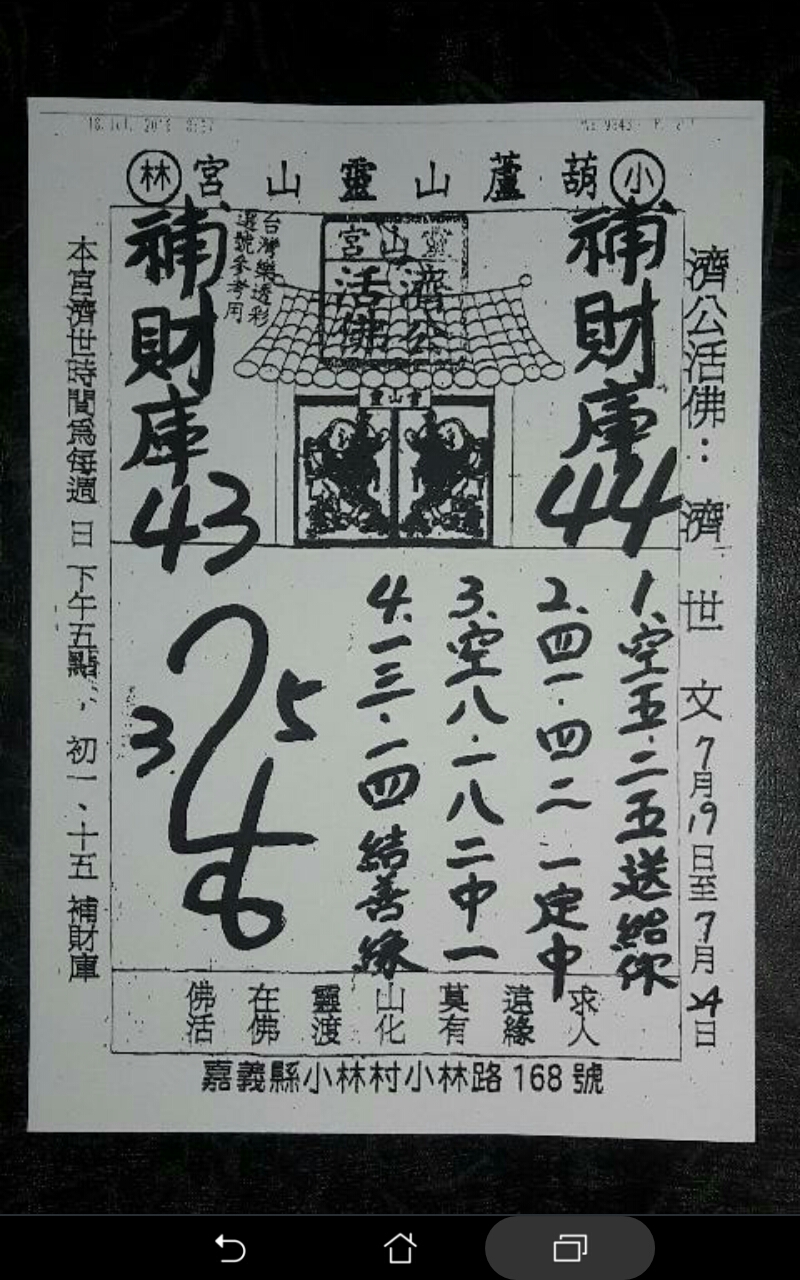 小葫蘆山靈山宮林
濟公活佛：濟世文7月19日至7月24日
補財庫44
靈山宮
濟公
活佛
台灣樂透彩
選號參考用
補財庫43
靈山宮
1.空五.二五送給你
2.四一.四二一定中
3.空八.一八二中一
4.一三.一四結善緣
5
3
求人
遠緣
莫有
山化
靈渡
在佛
佛活
本宮濟世時間為每週日下午五點，初一、十五補財庫
嘉義縣小林村小林路168號